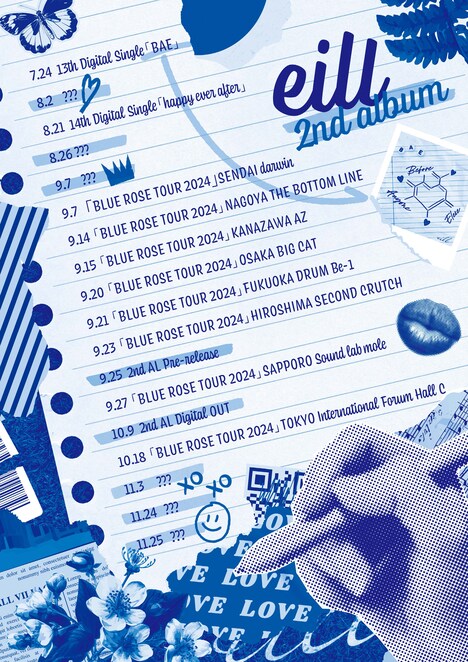 7.24 13th Digital Single「BAE」
8.2 ???
8.21 14th Digital Single「happy ever after」
8.26 ???
9.7 ???
eill
2nd album
Before
9.7 「BLUE ROSE TOUR 2024」SENDAI darwin
9.14 「BLUE ROSE TOUR 2024」NAGOYA THE BOTTOM LINE
9.15 「BLUE ROSE TOUR 2024」KANAZAWA AZ
9.20 「BLUE ROSE TOUR 2024」OSAKA BIG CAT
9.21 「BLUE ROSE TOUR 2024」FUKUOKA DRUM Be-1
9.23 「BLUE ROSE TOUR 2024」HIROSHIMA SECOND CRUTCH
9.25 2nd AL Pre-release
9.27 「BLUE ROSE TOUR 2024」SAPPORO Sound lab mole
10.9 2nd AL Digital OUT
10.18 「BLUE ROSE TOUR 2024」TOKYO International Forum Hall C
11.3 ???
XO XO
11.24 ???
11.25 ???
LOVE
LOVE LOVE